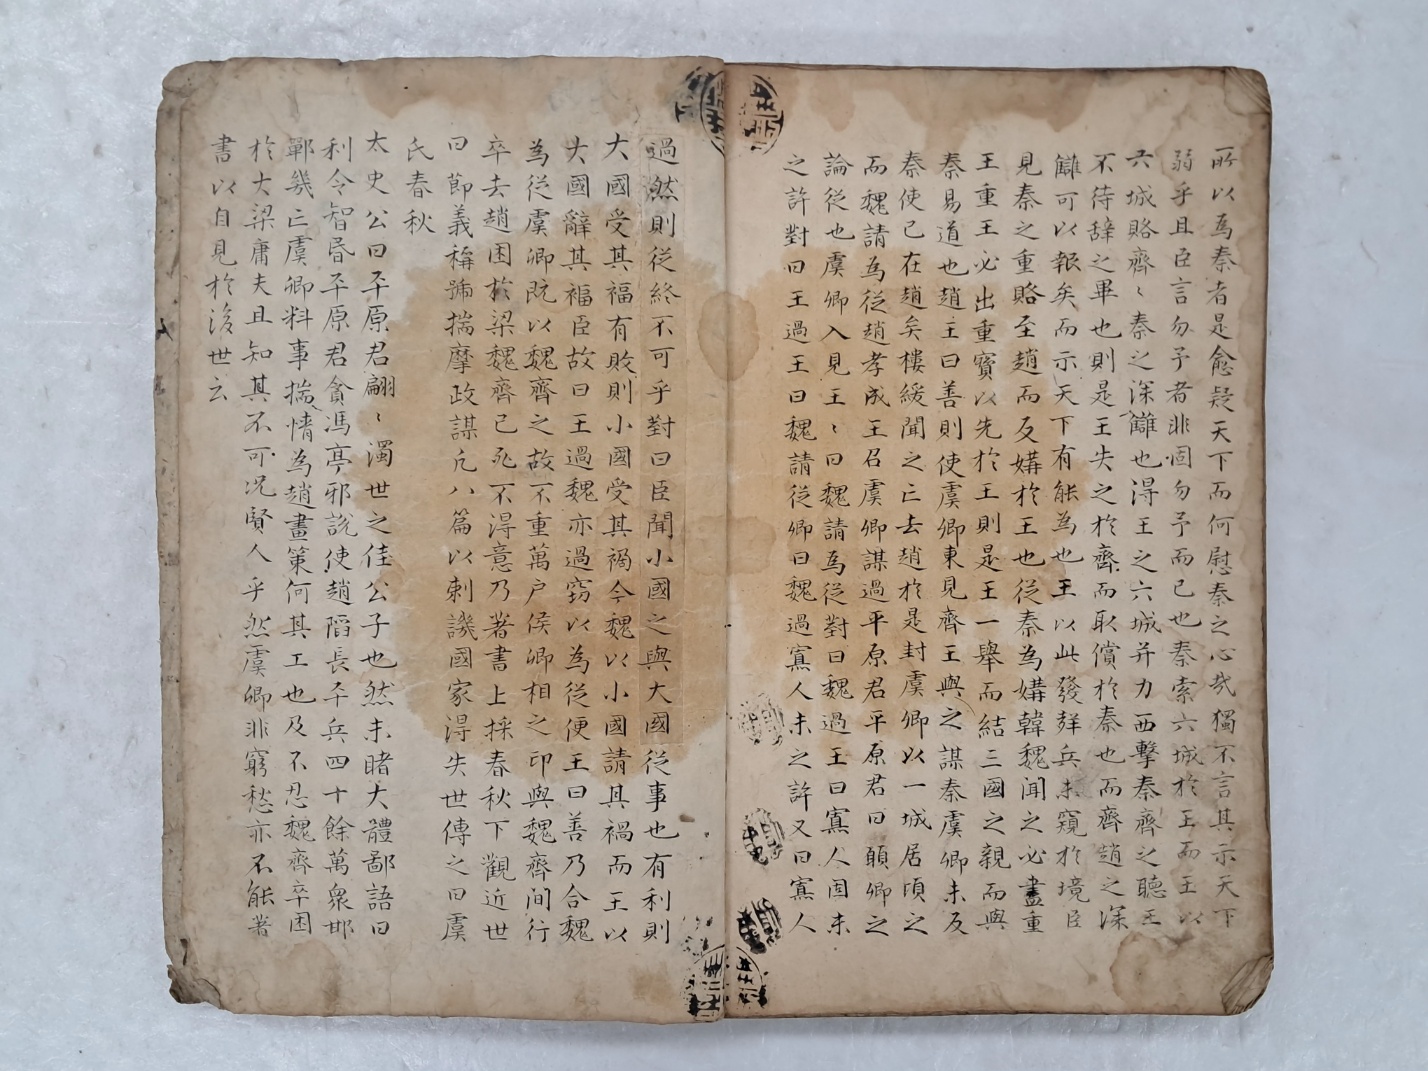 所以為秦者是愈疑天下而何慰秦之心㢤獨不言其示天下
弱乎且臣言勿予者非固勿予而已也秦索六城於王而王以
六城賂齊〻秦之深讎也得王之六城并力西擊秦齊之聽王
不待辞之畢也則是王失之於齊而取償於秦也而齊趙之深
讎可以報矣而示天下有能為也王以此發聲兵未窺於境臣
見秦之重賂至趙而反媾於王也従秦為媾韓魏聞之必盡重
王重王必出重寶以先於王則是王一舉而結三國之親而與
秦易道也趙王曰善則使虞卿東見齊王與之謀秦虞卿未反
秦使已在趙矣樓緩聞之亡去趙於是封虞卿以一城居頃之
而魏請為従趙孝成王召虞卿謀過平原君平原君曰願卿之
論従也虞卿入見王〻曰魏請為従對曰魏過王曰寡人固未
之許對曰王過王曰魏請従卿曰魏過寡人未之許又曰寡人
過然則従終不可乎對曰臣聞小國之與大國従事也有利則
大國受其福有敗則小國受其禍今魏以小國請其禍而王以
大國辭其福臣故曰王過魏亦過窃以為従便王曰善乃合魏
為従虞卿既以魏齊之故不重萬户侯卿相之印與魏齊间行
卒去趙困於梁魏齊已死不得意乃著書上採春秋下觀近世
曰節義稱號揣摩政謀凢八篇以刺譏國家得失世傳之曰虞
氏春秋
太史公曰平原君翩〻濁世之佳公子也然未睹大體鄙語曰
利令智昏平原君貪馮亭邪説使趙陷長平兵四十餘萬衆邯
鄲幾亡虞卿料事揣情為趙畫策何其工也及不忍魏齊卒困
於大梁庸夫且知其不可况賢人乎然虞卿非窮愁亦不能著
書以自見於後世云